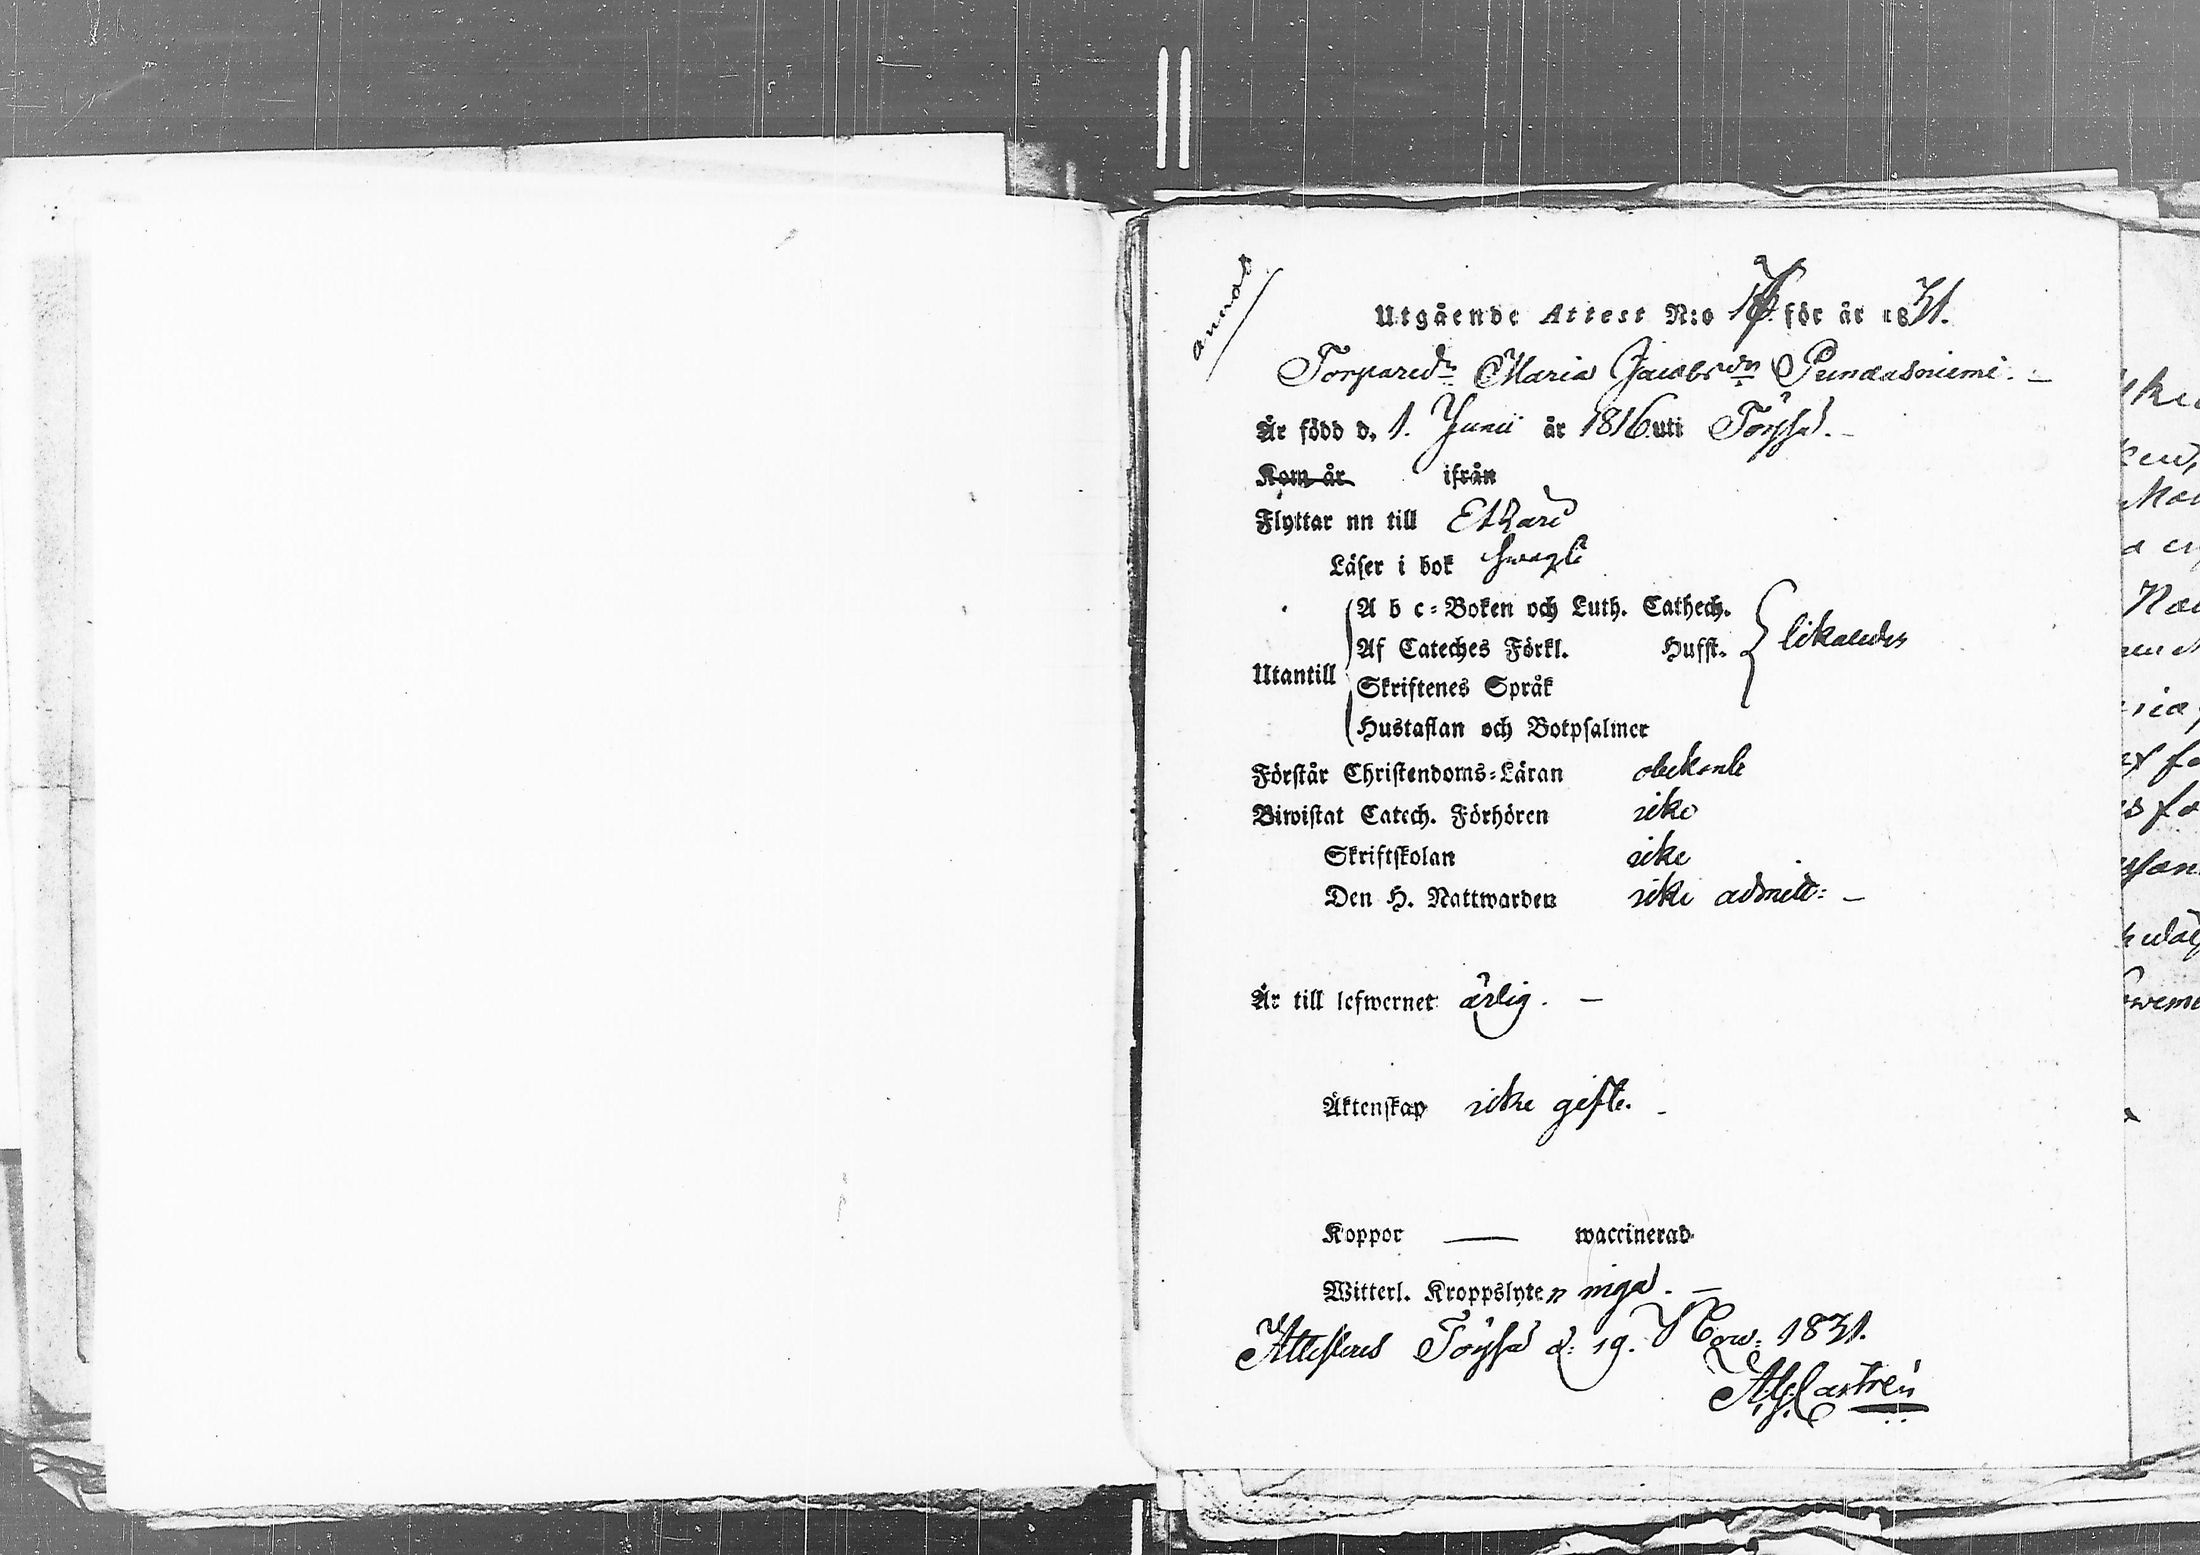 anerdt
Utgående Attest N:o för år 1831.
Torpared:n Maria Jacobsdn Pundasniemi. –
Är född d. 1. Junii år 1816 uti Töysä. –
Kom år ifrån
Flyttar nn till Etsäri
Läser i bok swagt
A b c=Boken och Luth. Cathech.
Af Cateches Förkl. Husst. likaledes
Utantill
Skriftenes Språk
Hustaflan och Botpsalmer
Förstår Christendoms=Läran obekant
Biwistat Catech. Förhören icke
Skriftskolan icke
Den H. Nattwarden icke admitt: –
Är till lefwernet ärlig. –
Äktenskap icke gift. –
Koppor — waccinerad
Witterl. Kroppslyten inga. –
Attesteras Töysä d: 19. Nov: 1831.
Castrén